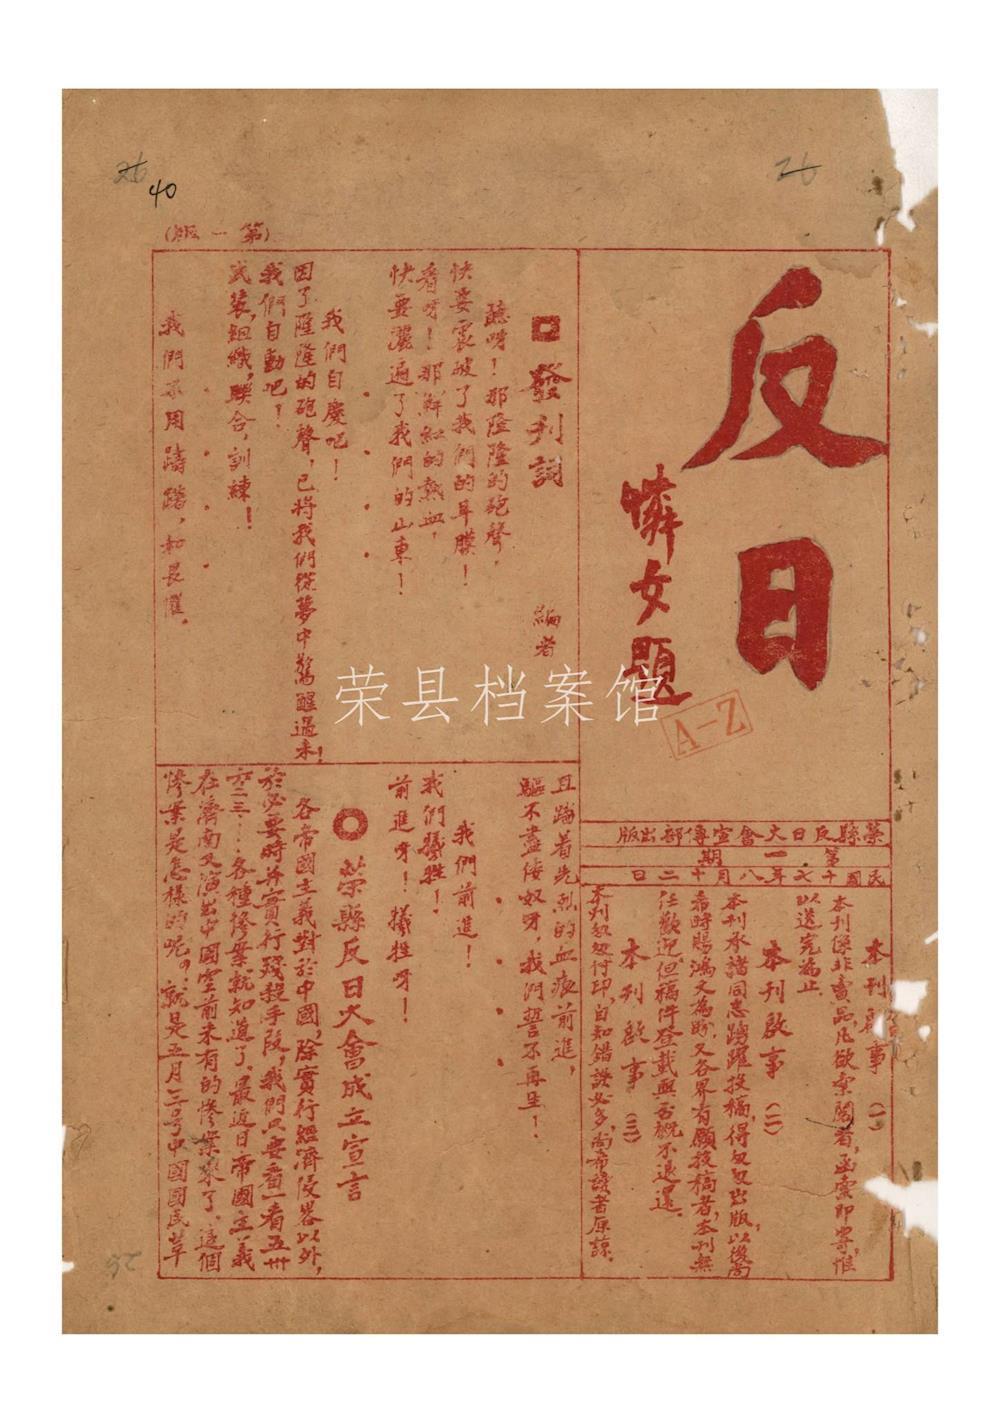 26
40
26
(第一版)
反日
憐女題
A-Z
榮縣反日大會宣傳部出版
第一期
民國十七年八月十二日
本刊啟事(一)
本刊係非賣品凡欲索閱者,函索即寄,惟
以送完為止.
本刊啟事(二)
本刊承諸同志踴躍投稿,得匆匆出版,以後尚
希時賜鴻文為盼.又各界有願投稿者,本刊無
任歡迎,但稿件登載與否概不退還.
本刊啟事(三)
本刊匆匆付印,自知錯誤必多,尚希讀者原諒.
發刊詞
編者
聽呀!那隆隆的砲聲,
快要震破了我們的耳膜!
看呀!那鮮紅的熱血,
快要灑遍了我們的山東!
我們自慶吧!
因了隆隆的砲聲,已將我們從夢中驚醒過來!
我們自動吧!
武裝,組織,聯合,訓練!
我們不用躊躇,和畏懼.
且踏着先烈的血痕前進,
驅不盡倭奴呀,我們誓不再生!
我們前進!
我們犧牲!
前進呀!犧牲呀!
榮縣反日大會成立宣言
各帝國主義對於中國,除實行經濟侵畧以外,
於必要時并實行殘殺手段,我們只要看一看五卅
六二三…各種慘案就知道了.最近日帝國主義
在濟南又演出中國空前未有的慘案來了.這個
慘案是怎樣的呢?就是五月三号中國國民革
26
荣县档案馆